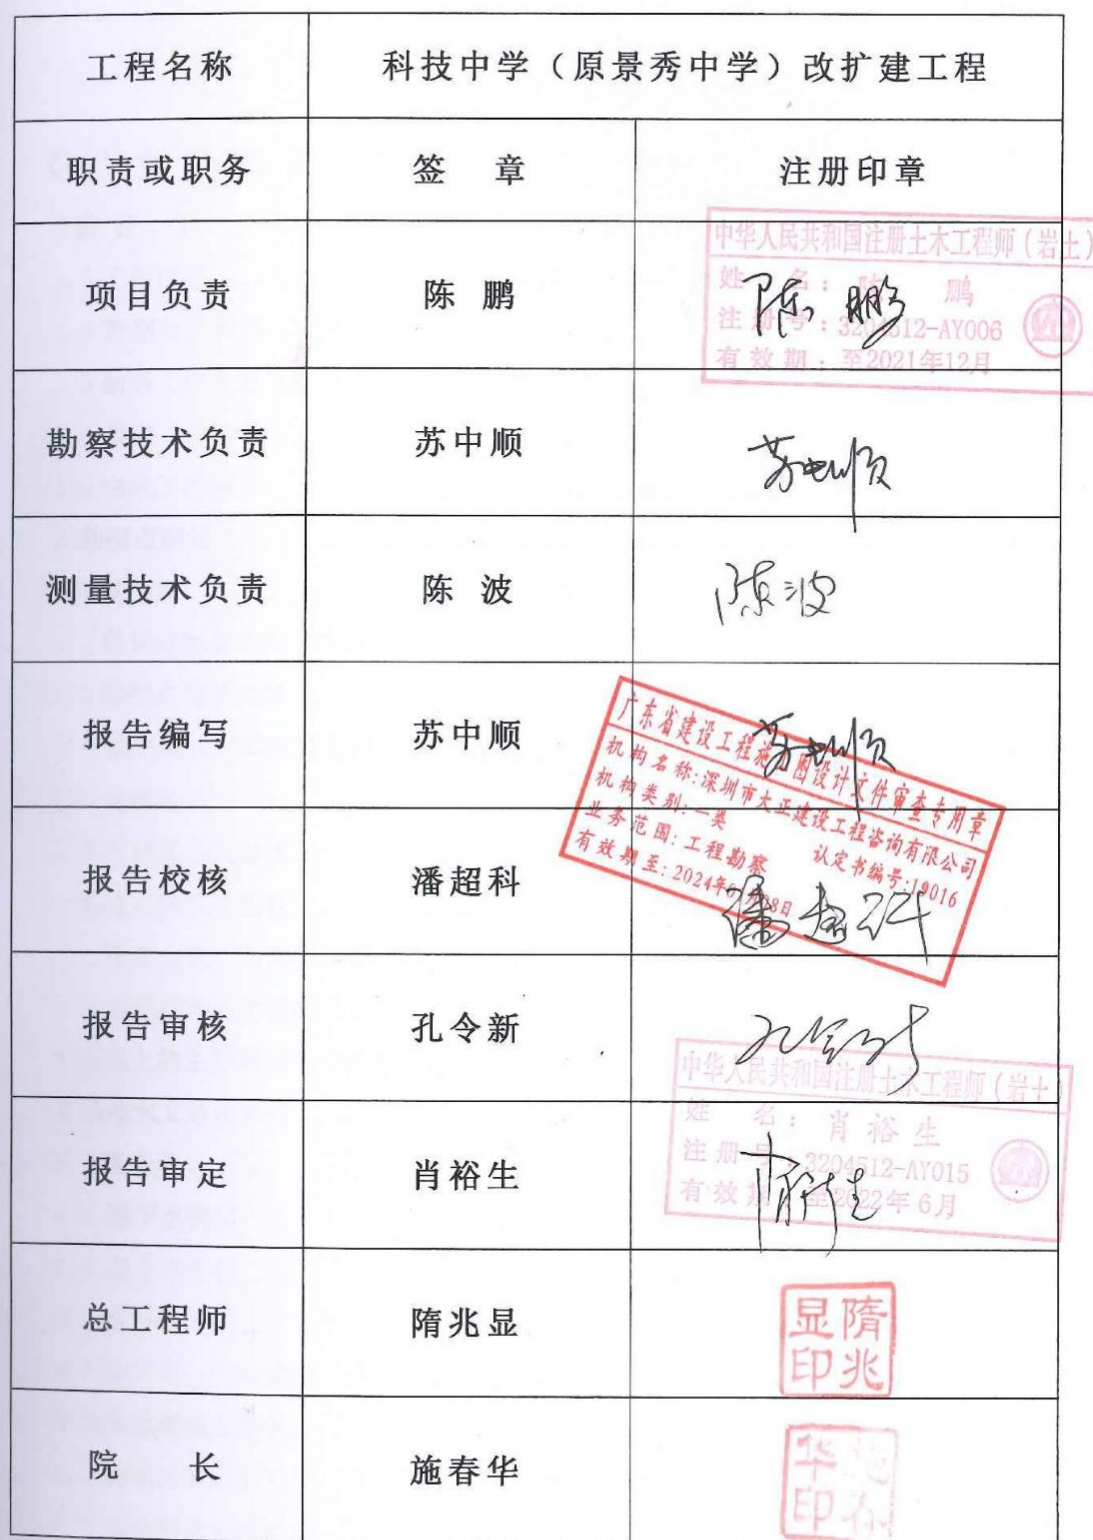 工程名称 科技中学（原景秀中学）改扩建工程
职责或职务 签 章 注册印章
项目负责 陈 鹏
中华人民共和国注册土木工程师（岩土）
姓 名：陈 鹏
注册号：3204512-AY006
有效期：至2021年12月
陈鹏
勘察技术负责 苏中顺 苏中顺
测量技术负责 陈 波 陈波
报告编写 苏中顺 苏中顺
广东省建设工程施工图设计文件审查专用章
机构名称:深圳市大正建设工程咨询有限公司
机构类别:一类 认定书编号:19016
业务范围:工程勘察
有效期至:2024年
报告校核 潘超科 潘超科
报告审核 孔令新 孔令新
中华人民共和国注册土木工程师（岩土）
姓 名：肖裕生
注册号：3204512-AY015
有效期：至2022年6月
报告审定 肖裕生 肖裕生
总工程师 隋兆显 隋兆显印
院 长 施春华 施春华印